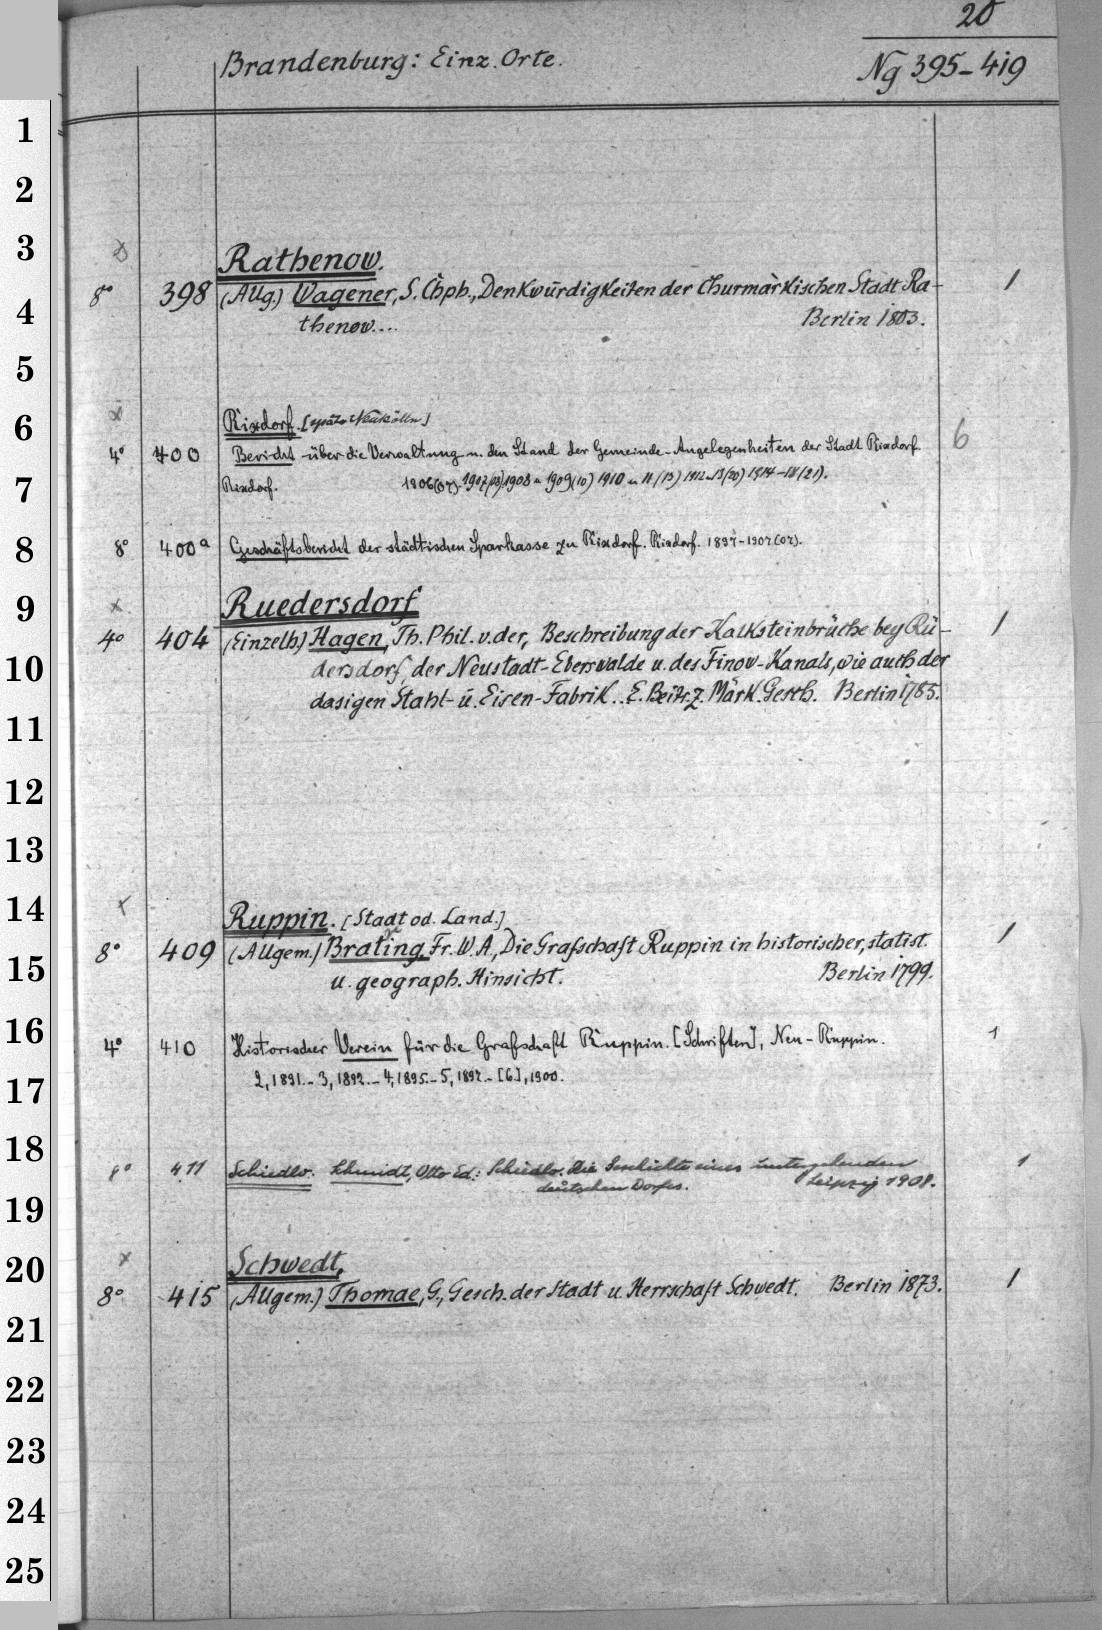 20
Brandenburg: Einz. Orte.
Ng 395-419
1
2
3
Rathenow.
8° 398 (Allg.) Wagener, S. Chph., Denkwürdigkeiten der Churmärkischen Stadt Ra- 1
4
thenow.... Berlin 1803.
5
6
Rixdorf. [später Neukölln]
4° 400 Bericht über die Verwaltung u. den Stand der Gemeinde-Angelegenheiten der Stadt Rixdorf. 6
7
Rixdorf. 1906(07). 1907(08) 1908 u 1909(10) 1910 u 11 (13) 1912 u 13(20) 1914-18(21).
8
8° 400a Geschäftsbericht der städtischen Sparkasse zu Rixdorf. Rixdorf. 1897-1901(02).
9
Ruedersdorf
4° 404 (Einzelh.) Hagen, Th. Phil. v. der, Beschreibung der Kalksteinbrüche bey Rü- 1
10
dersdorf, der Neustadt-Eberswalde u. des Finow-Kanals, wie auch der
dasigen Stahl- u. Eisen-Fabrik... E. Beitr. z. Märk. Gesch. Berlin 1785.
11
12
13
14
Ruppin. [Stadt od. Land.]
8° 409 (Allgem.) Brating, Fr. W. A., Die Grafschaft Ruppin in historischer, statist. 1
15
u. geograph. Hinsicht. Berlin 1799.
16
4° 410 Historischer Verein für die Grafschaft Ruppin. [Schriften], Neu-Ruppin. 1
17
2, 1891.- 3, 1892.- 4, 1895.- 5, 1897.- [6], 1900.
18
8° 411 Schiedlo. Schmidt, Otto Ed.: Schiedlo. Die Geschichte eines untergehenden 1
deutschen Dorfes. Leipzig 1908.
19
20
Schwedt,
8° 415 (Allgem.) Thomae, G., Gesch. der Stadt u. Herrschaft Schwedt. Berlin 1873. 1
21
22
23
24
25